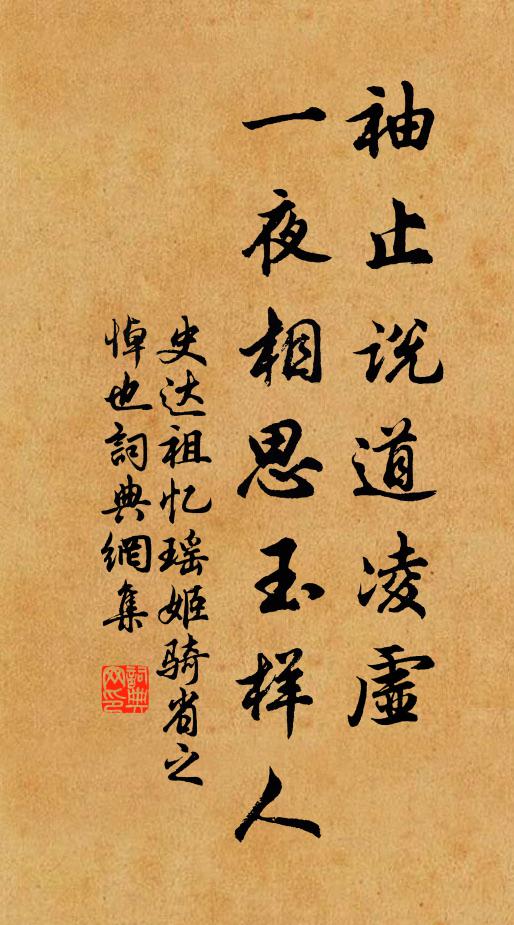 袖止说道凌虚
一夜相思玉样人
史达祖忆瑶姬骑省之
悼也詞典網集
詞典网印